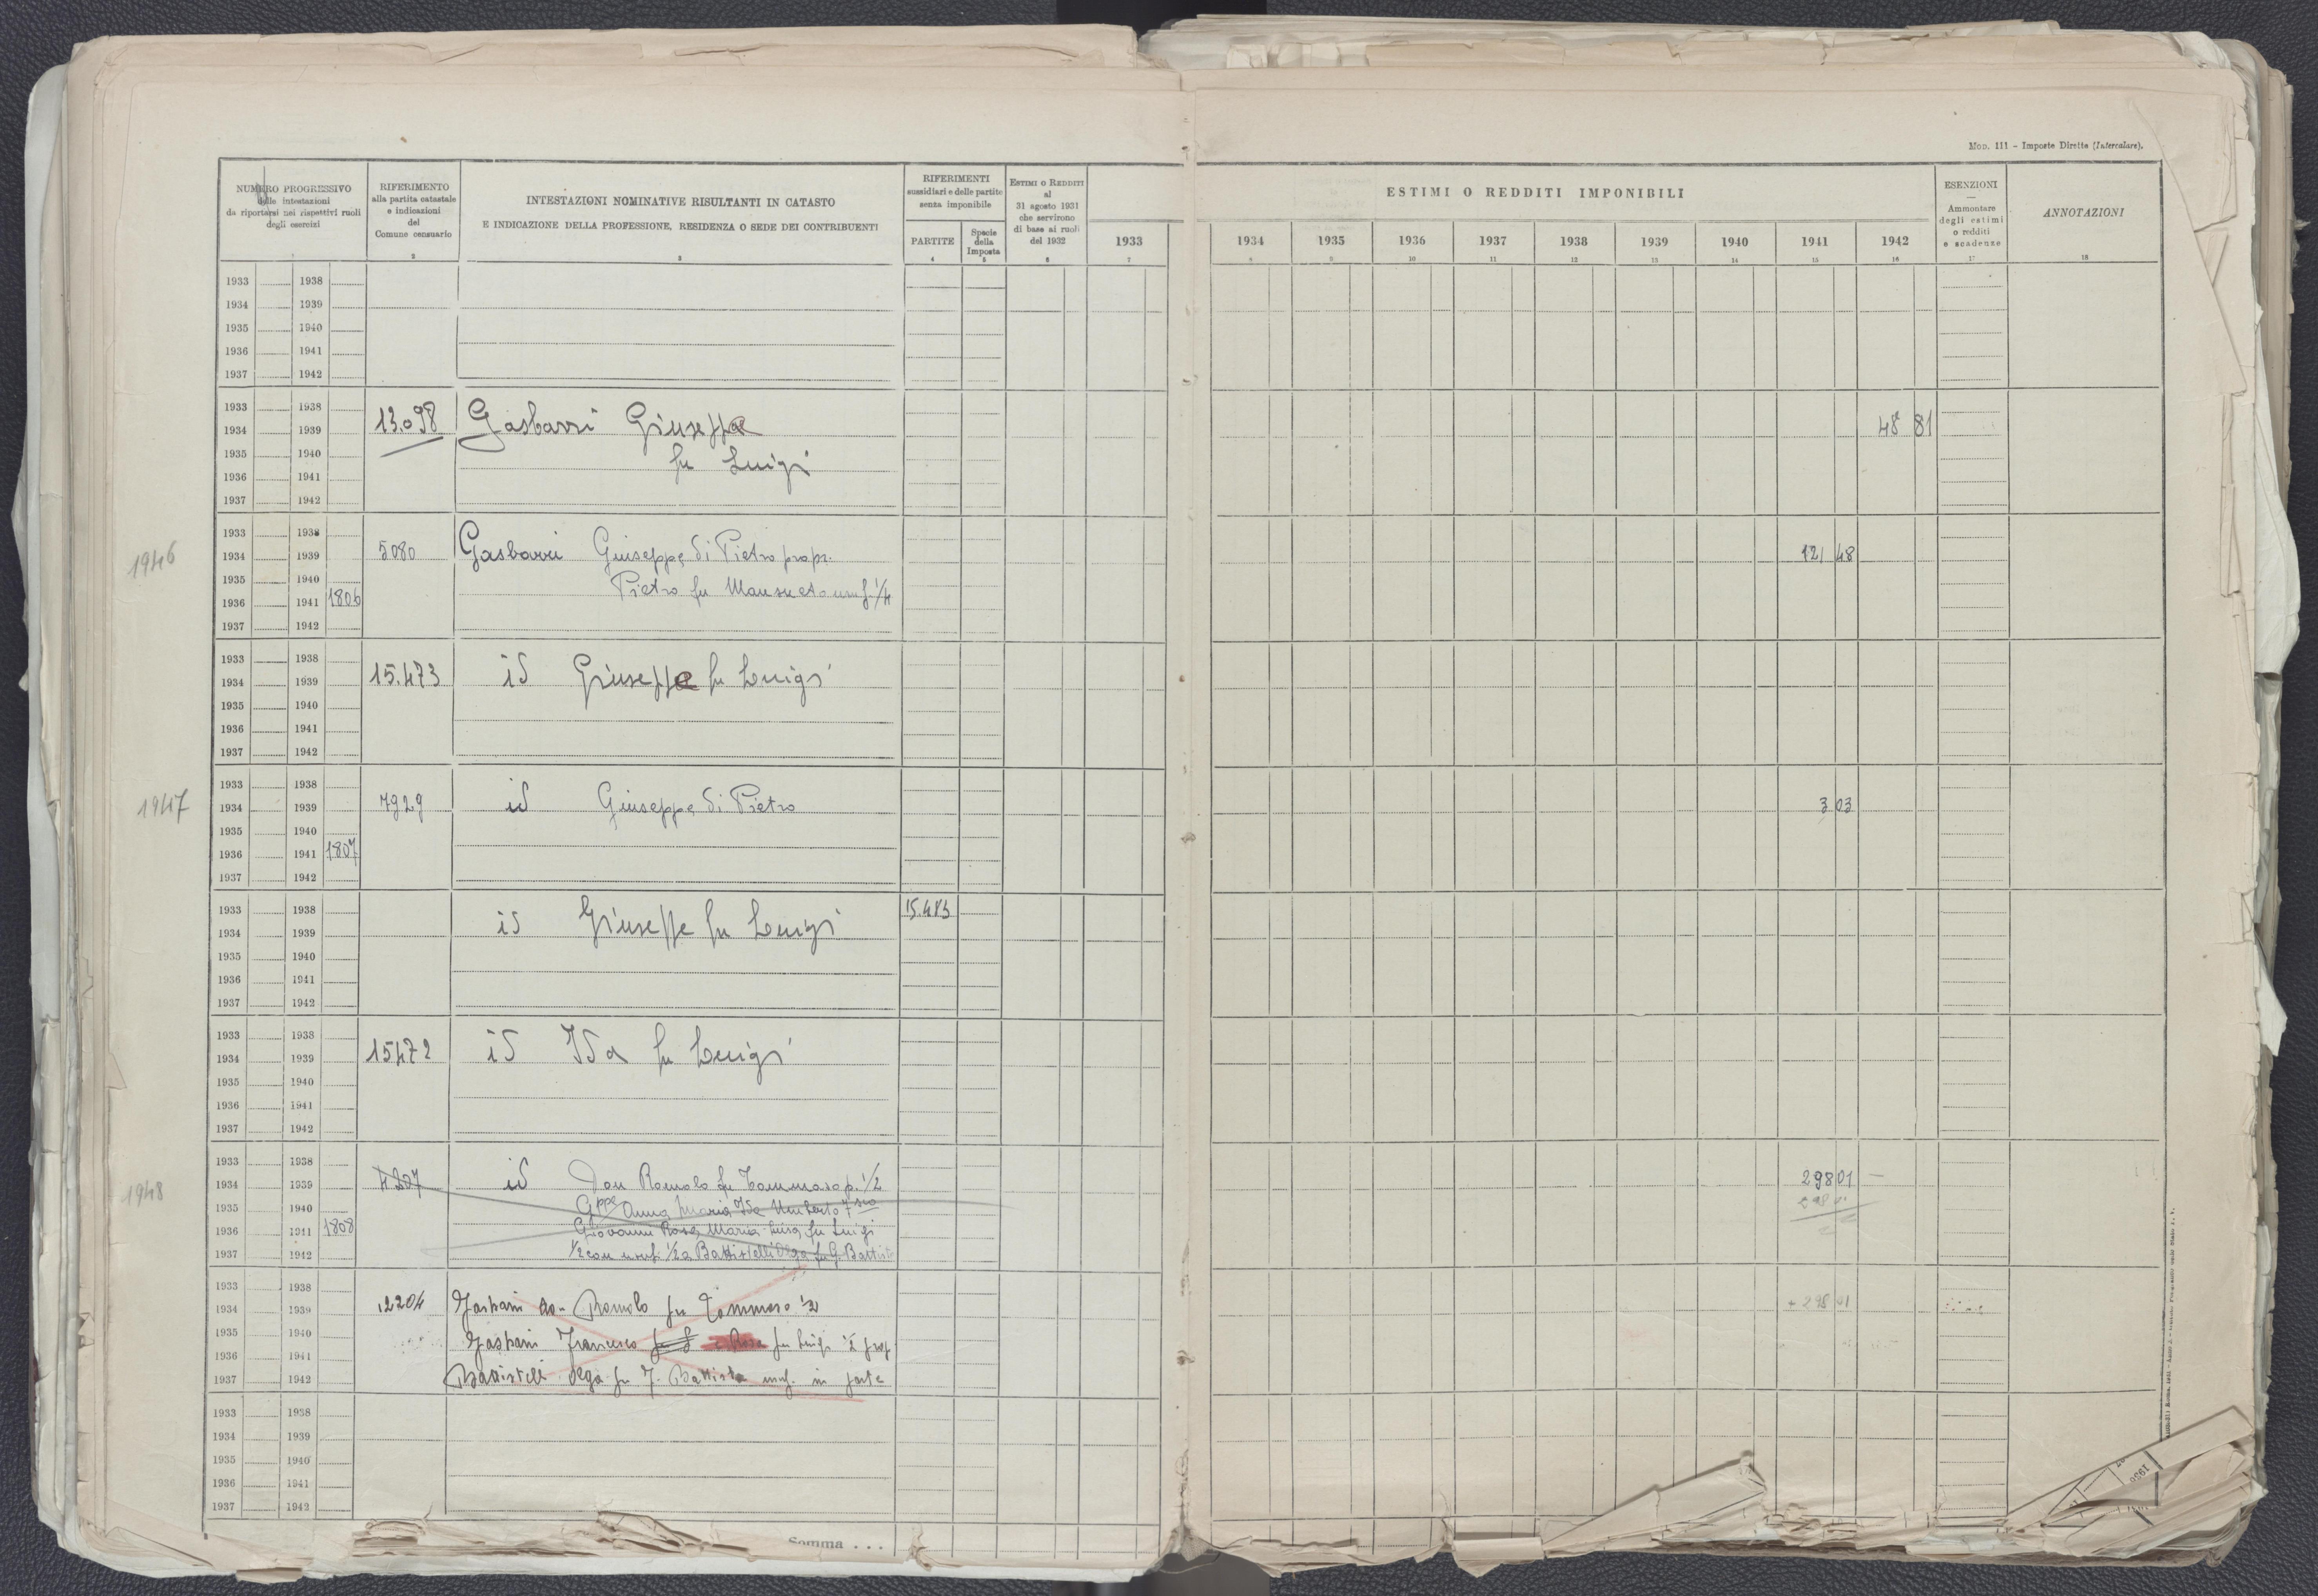 MOD. 111 - Imposte Dirette (Intercalare).
NUMERO PROGRESSIVO
delle intestazioni
da riportarsi nei rispettivi ruoli
degli esercizi
1
RIFERIMENTO
alla partita catastale
e indicazioni
del
Comune censuario
2
INTESTAZIONI NOMINATIVE RISULTANTI IN CATASTO
E INDICAZIONE DELLA PROFESSIONE, RESIDENZA O SEDE DEI CONTRIBUENTI
3
RIFERIMENTI
sussidiari e delle partite
senza imponibile
PARTITE
4
Specie
della
Imposta
5
ESTIMI O REDDITI
al
31 agosto 1931
che servirono
di base ai ruoli
del 1932
6
1933
7
ESTIMI O REDDITI IMPONIBILI
1934 1935 1936 1937 1938 1939 1940 1941 1942
8 9 10 11 12 13 14 15 16
ESENZIONI
Ammontare
degli estimi
o redditi
e scadenze
17
ANNOTAZIONI
18
1933 1938
1934 1939
1935 1940
1936 1941
1937 1942
1933 1938
1934 1939 13.098 Gasbarri Giuseppe 48 81
1935 1940 fu Luigi
1936 1941
1937 1942
1933 1938
1946 1934 1939 5080 Gasbarri Giuseppe di Pietro propr. 121 48
1935 1940
1936 1941 1806 Pietro fu Mansueto usuf. 1/4
1937 1942
1933 1938
1934 1939 15.473 id Giuseppe fu Luigi
1935 1940
1936 1941
1937 1942
1933 1938
1947 1934 1939 7929 id Giuseppe di Pietro 3 03
1935 1940
1936 1941 1807
1937 1942
1933 1938 15.483
1934 1939 id Giuseppe fu Luigi
1935 1940
1936 1941
1937 1942
1933 1938
1934 1939 15472 id Ida fu Luigi
1935 1940
1936 1941
1937 1942
1933 1938
1948 1934 1939 4207 id Don Romolo fu Tommaso p. 1/2 298 01
1935 1940 Gppe Anna Maria Ida Umberto 298 01
1936 1941 1808 Giovanni Rosa Maria Luisa fu Luigi
1937 1942 1/2 con usuf. 1/2 a Battistelli Olga fu G. Battista
1933 1938
1934 1939 12204 Gasbarri don Romolo fu Tommaso 1/2 + 298 01
1935 1940 Gasbarri Francesco e Rosa fu Luigi
1936 1941
1937 1942 Battistelli Olga fu G. Battista usuf. in parte
1933 1938
1934 1939
1935 1940
1936 1941
1937 1942
Somma . . .